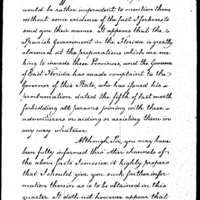 would be rather imprudent to mention them
without some evidence of the fact I forbear to
send you their names. It appears that the
Spanish Government in the Floridas is greatly
alarmed at the preparations which are mak-
ing to invade these Provinces, and the Governor
of East Florida has made complaint to the
Governor of this State, who has issued his
proclamation dated the fifth of last month
forbidding all persons joining with these
adventurers or aiding or assisting them in
any way whatever.
Although, Sir, you may have
been fully informed thro' other channels of
the above facts I conceive it highly proper
that I should give you such farther infor-
mation therein as is to be obtained in this
quarter. It doth not however appear that